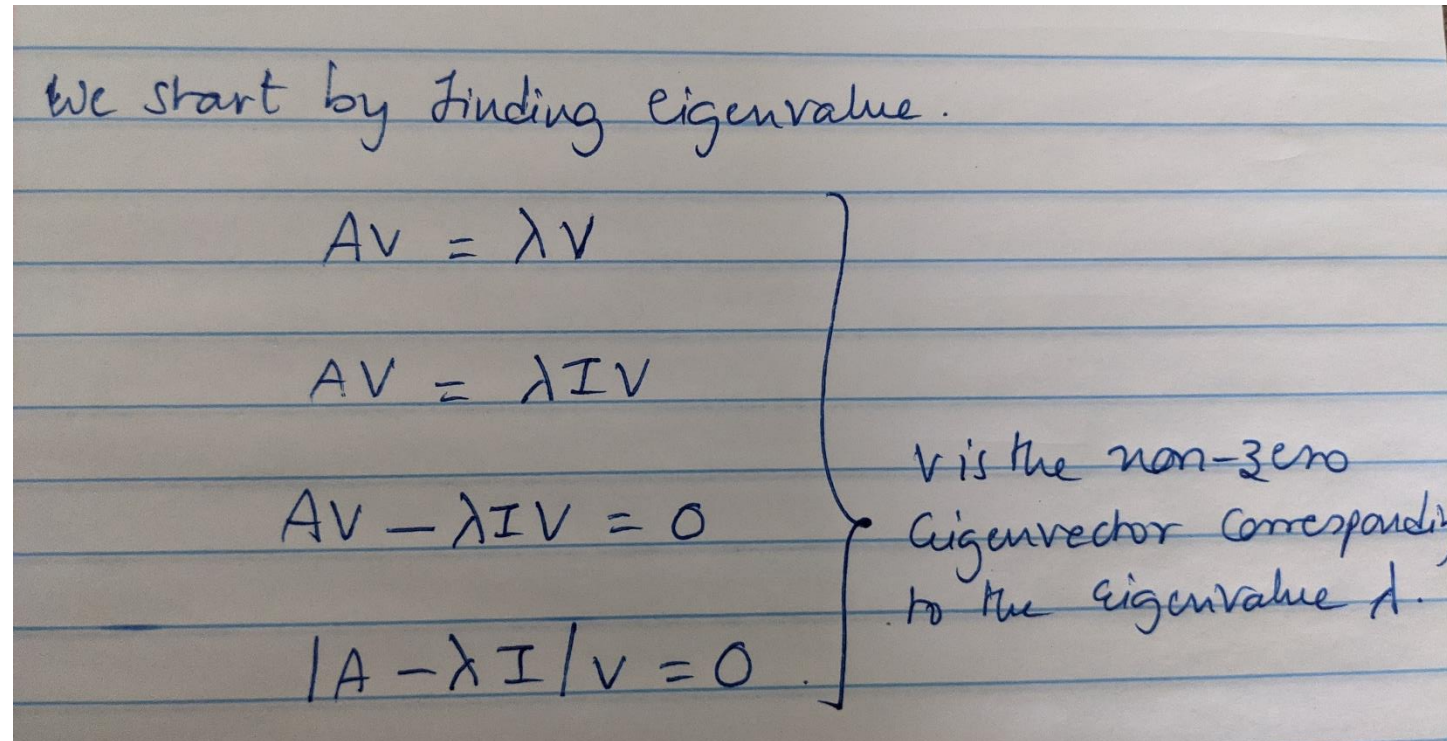 We start by finding eigenvalue.
AV = λV
AV = λIV
AV – λIV = 0
|A – λI|V = 0.
V is the non-zero
eigenvector correspondi
to the eigenvalue λ.